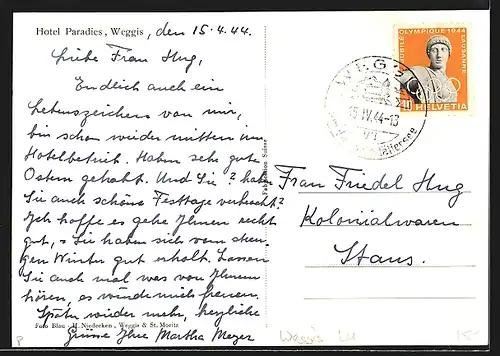 Hotel Paradies, Weggis, den 15.4.44.
Liebe Frau Hug,
Endlich auch ein
Lebenszeichen von mir,
bin schon wieder mitten im
Hotelbetrieb. Haben sehr gute
Ostern gehabt. Und Sie? haben
Sie auch schöne Festtage verbracht?
Ich hoffe es gehe Ihnen recht
gut, & Sie haben sich vom
gen Winter gut erholt. Lassen
Sie auch mal was von Ihnen
hören, es würde mich freuen.
Später wieder mehr, herzliche
Grüsse Ihre Martha Meyer
Foto Blau - H. Niederken, Weggis & St. Moritz
Fabrikation Suisse
JUBILÉ OLYMPIQUE 1944 LAUSANNE
10
HELVETIA
WEGGIS
15.IV.44-13
Frau Friedel Hug
Kolonialwaren
Stans.
Weggis LU
15-
P